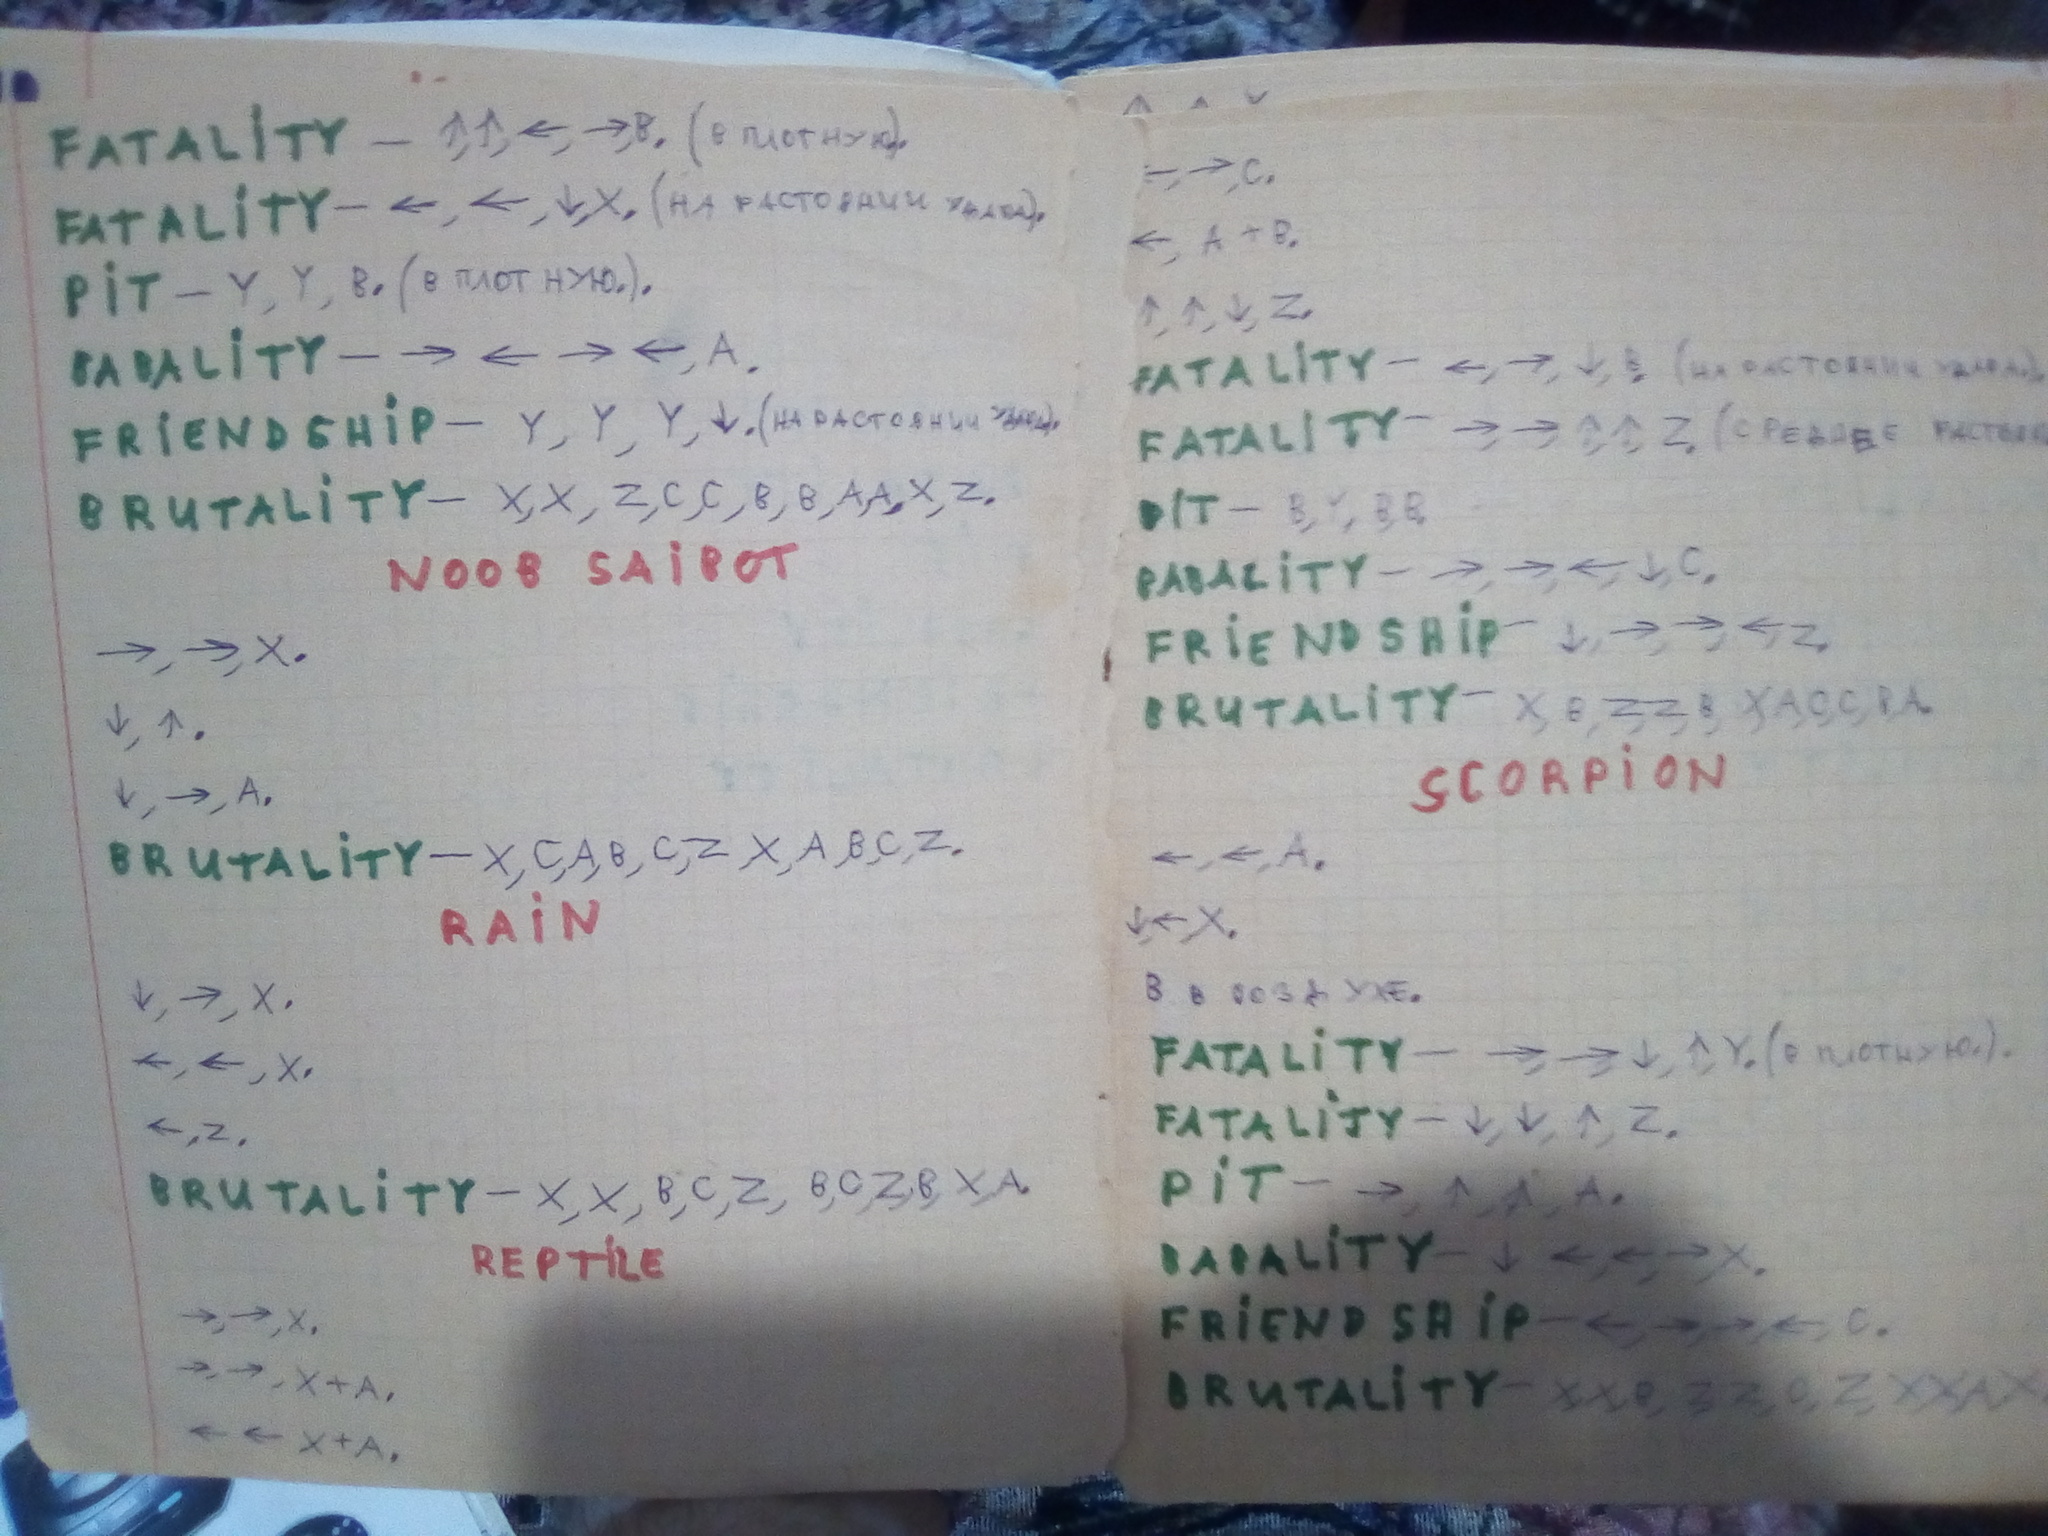 FATALITY — ↑,↑,←,→,B. (В ПЛОТНУЮ).
FATALITY — ←, ←, ↓, X. (НА РАСТОЯНИИ УДАРА).
PIT — Y, Y, B. (В ПЛОТНУЮ.).
BABALITY — → ← → ←, A.
FRIENDSHIP — Y, Y, Y, ↓. (НА РАСТОЯНИИ УДАРА).
BRUTALITY — X,X, Z,C,C, B, B, A,A,X, Z.
NOOB SAIBOT
→, →, X.
↓, ↑.
↓, →, A.
BRUTALITY — X, C,A,B, C,Z X, A, B,C, Z.
RAIN
↓, →, X.
←, ←, X.
←, Z.
BRUTALITY — X, X, B,C, Z, B,C,Z,B, X, A.
REPTILE
→, →, X.
→, →, X+A.
← ← X+A.
←, →, C.
←, A + B.
↑, ↑, ↓, Z.
FATALITY — ←, →, ↓, B. (НА РАСТОЯНИИ УДАРА).
FATALITY — → → ↑, ↑, Z. (СРЕДНЕЕ
PIT — B, Y, B,B.
BABALITY — →, →, ←, ↓, C.
FRIENDSHIP — ↓, →, →, ← Z.
BRUTALITY — X, B, Z,Z, B, X,A,C,C, B,A.
SCORPION
←, ←, A.
↓ ← X.
В В ВОЗДУХЕ.
FATALITY — →, →, ↓, ↑, Y. (В ПЛОТНУЮ.).
FATALITY — ↓, ↓, ↑, Z.
PIT — →, ↑, ↑, A.
BABALITY — ↓ ←, ←, → X.
FRIENDSHIP — ←, →, →, ←, C.
BRUTALITY —